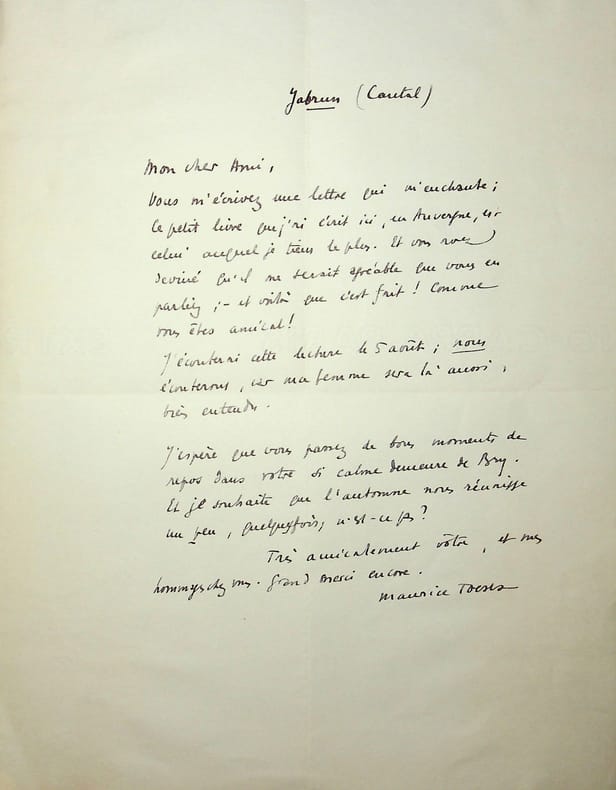 Jabrun (Cantal)
Mon cher Ami,
Vous m'écrivez une lettre qui m'enchante ;
le petit livre que j'ai écrit ici, en Auvergne, est
celui auquel je tiens le plus. Et vous avez
deviné qu'il me serait agréable que vous en
parliez ; - et voilà que c'est fait ! Comme
vous êtes amical !
J'écouterai cette lecture le 5 août ; nous
écouterons, car ma femme sera là aussi,
bien entendu.
J'espère que vous passez de bons moments de
repos dans votre si calme demeure de Bry.
Et je souhaite que l'automne nous réunisse
un peu, quelquefois, n'est-ce pas ?
Très amicalement vôtre, et mes
hommages chez vous. Grand merci encore.
Maurice Toesca